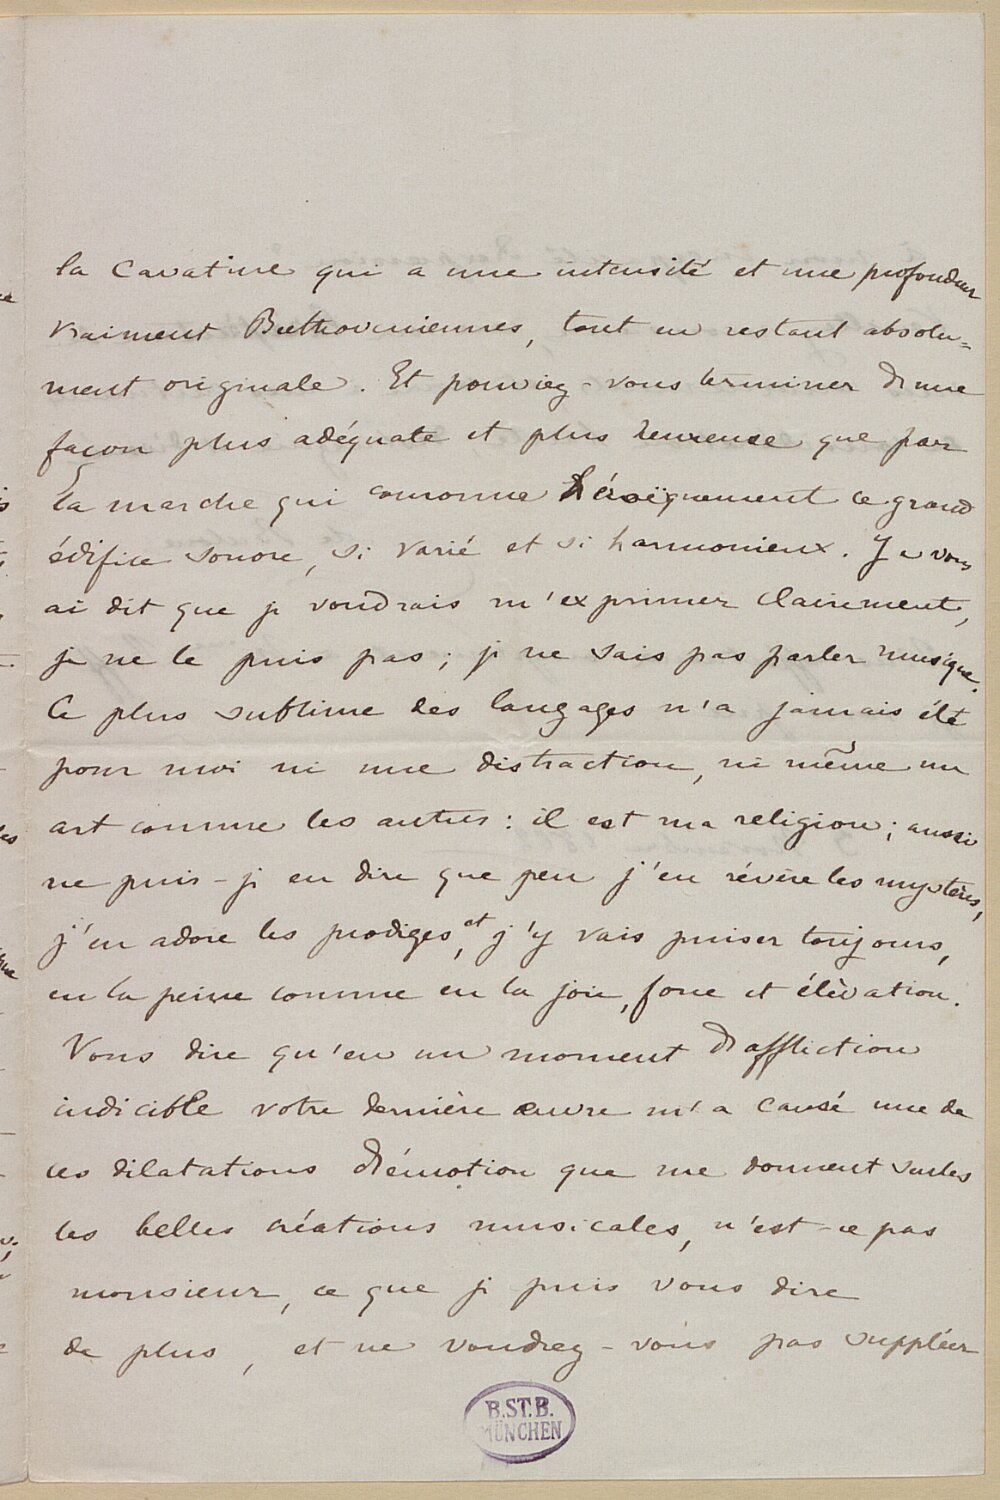 la Cavatine qui a une intensité et une profondeur
vraiment Beethoveniennes, tout en restant absolu=
ment originale. Et pouviez-vous terminer d'une
façon plus adéquate et plus heureuse que par
la marche qui couronne héroïquement ce grand
édifice sonore, si varié et si harmonieux. Je vous
ai dit que je voudrais m'exprimer clairement,
je ne le puis pas; je ne sais pas parler musique.
Ce plus sublime des langages n'a jamais été
pour moi ni une distraction, ni même un
art comme les autres: il est ma religion; aussi
ne puis-je en dire que peu j'en révère les mystères,
j'en adore les prodiges, et j'y vais puiser toujours,
en la peine comme en la joie, force et élévation.
Vous dire qu'en un moment d'affliction
indicible votre dernière œuvre m'a causé une de
ces dilatations d'émotion que me donnent seules
les belles créations musicales, n'est-ce pas
monsieur, ce que je puis vous dire
de plus, et ne voudrez-vous pas suppléer
B.ST.B.
MÜNCHEN